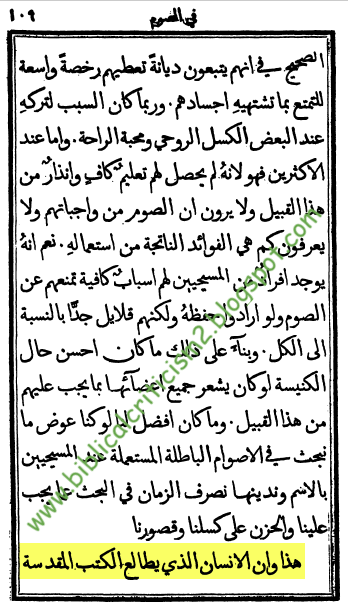 في الصوم ١٠٩
الصحيح في انهم يتبعون ديانة تعطيهم رخصةً واسعة
للتمتع بما تشتهيهِ اجسادهم. وربما كان السبب لتركهِ
عند البعض الكسل الروحي ومحبة الراحة. واما عند
الاكثرين فهو لانهُ لم يحصل لهم تعليمٌ كافٍ وانذارٌ من
هذا القبيل ولا يرون ان الصوم من واجباتهم ولا
يعرفون كم هي الفوائد الناتجة من استعمالهِ. نعم انهُ
يوجد افراد من المسيحيين لهم اسبابٌ كافية تمنعهم عن
الصوم ولو ارادوا حفظهُ ولكنهم قلايل جدًّا بالنسبة
الى الكل. وبناءً على ذلك ما كان احسن حال
الكنيسة لو كان يشعر جميع اعضآئها بما يجب عليهم
من هذا القبيل. وما كان افضل لنا لو كنا عوض ما
نبحث في الاصوام الباطلة المستعملة عند المسيحيين
بالاسم وندينها نصرف الزمان في البحث عما يجب
علينا والحزن على كسلنا وقصورنا
هذا وان الانسان الذي يطالع الكتب المقدسة
www.biblicalcriticism2.blogspot.com